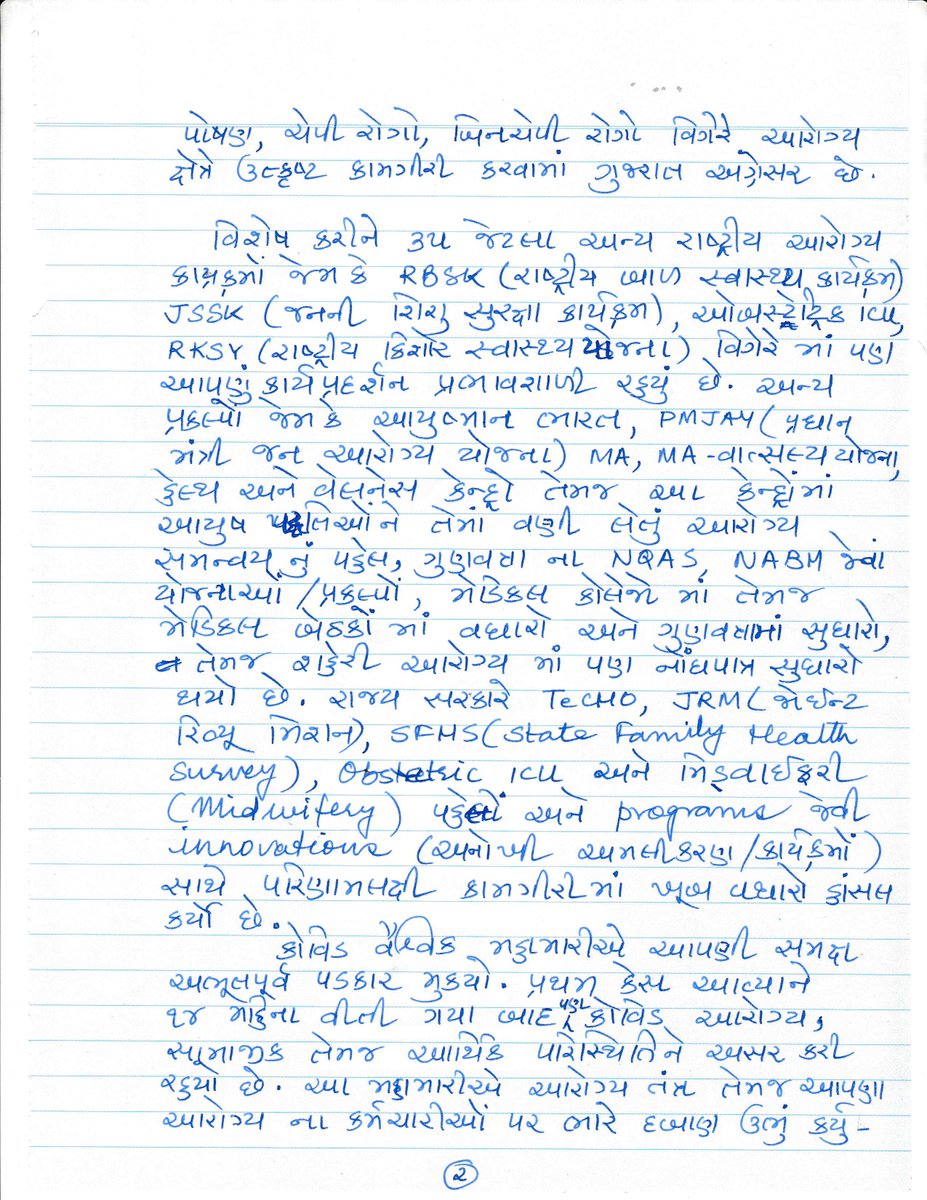 પોષણ, ચેપી રોગો, બિનચેપી રોગો વિગેરે આરોગ્ય
ક્ષેત્રે ઉત્કૃષ્ટ કામગીરી કરવામાં ગુજરાત અગ્રેસર છે.
વિશેષ કરીને ૩૫ જેટલા અન્ય રાષ્ટ્રીય આરોગ્ય
કાર્યક્રમોં જેમ કે RBSK (રાષ્ટ્રીય બાળ સ્વાસ્થ્ય કાર્યક્રમ)
JSSK (જનની શિશુ સુરક્ષા કાર્યક્રમ), ઓબસ્ટેટ્રિક ICU,
RKSY (રાષ્ટ્રીય કિશોર સ્વાસ્થ્ય યોજના) વિગેરે માં પણ
આપણું કાર્ય પ્રદર્શન પ્રભાવશાળી રહ્યું છે. અન્ય
પ્રકલ્પો જેમ કે આયુષ્માન ભારત, PMJAY (પ્રધાન
મંત્રી જન આરોગ્ય યોજના) MA, MA-વાત્સલ્ય યોજના,
હેલ્થ અને વેલનેસ કેન્દ્રો તેમજ આ કેન્દ્રોંમાં
આયુષ પદ્ધતિઓંને તેમાં વણી લેતું આરોગ્ય
સમન્વય નું પહેલ, ગુણવતા ના NQAS, NABM જેવાં
યોજનાઓં /પ્રકલ્પોં, મેડિકલ કોલેજો માં તેમજ
મેડિકલ બેઠકોં માં વધારો અને ગુણવતામાં સુધારો,
તેમજ શહેરી આરોગ્ય માં પણ નોંધપાત્ર સુધારો
થયો છે. રાજય સરકારે TeCHO, JRM (જોઈન્ટ
રિવ્યૂ મિશન), SFHS (State Family Health
Survey), Obstetric ICU અને મિડવાઈફરી
(Midwifery) પહેલોં અને programs જેવી
innovations (અનોખી અમલીકરણ /કાર્યક્રમોં)
સાથે પરિણામલક્ષી કામગીરીમાં ખૂબ વધારો હાંસલ
કર્યો છે.
કોવિડ વૈશ્વિક મહામારીએ આપણી સમક્ષ
અભૂતપૂર્વ પડકાર મુકયો. પ્રથમ કેસ આવ્યાને
૧૪ મહિના વીતી ગયા બાદ પણ કોવિડ આરોગ્ય,
સામાજીક તેમજ આર્થિક પરિસ્થિતિને અસર કરી
રહ્યો છે. આ મહામારીએ આરોગ્ય તંત્ર તેમજ આપણા
આરોગ્ય ના કર્મચારીઓં પર ભારે દબાણ ઉભું કર્યુ-
૨